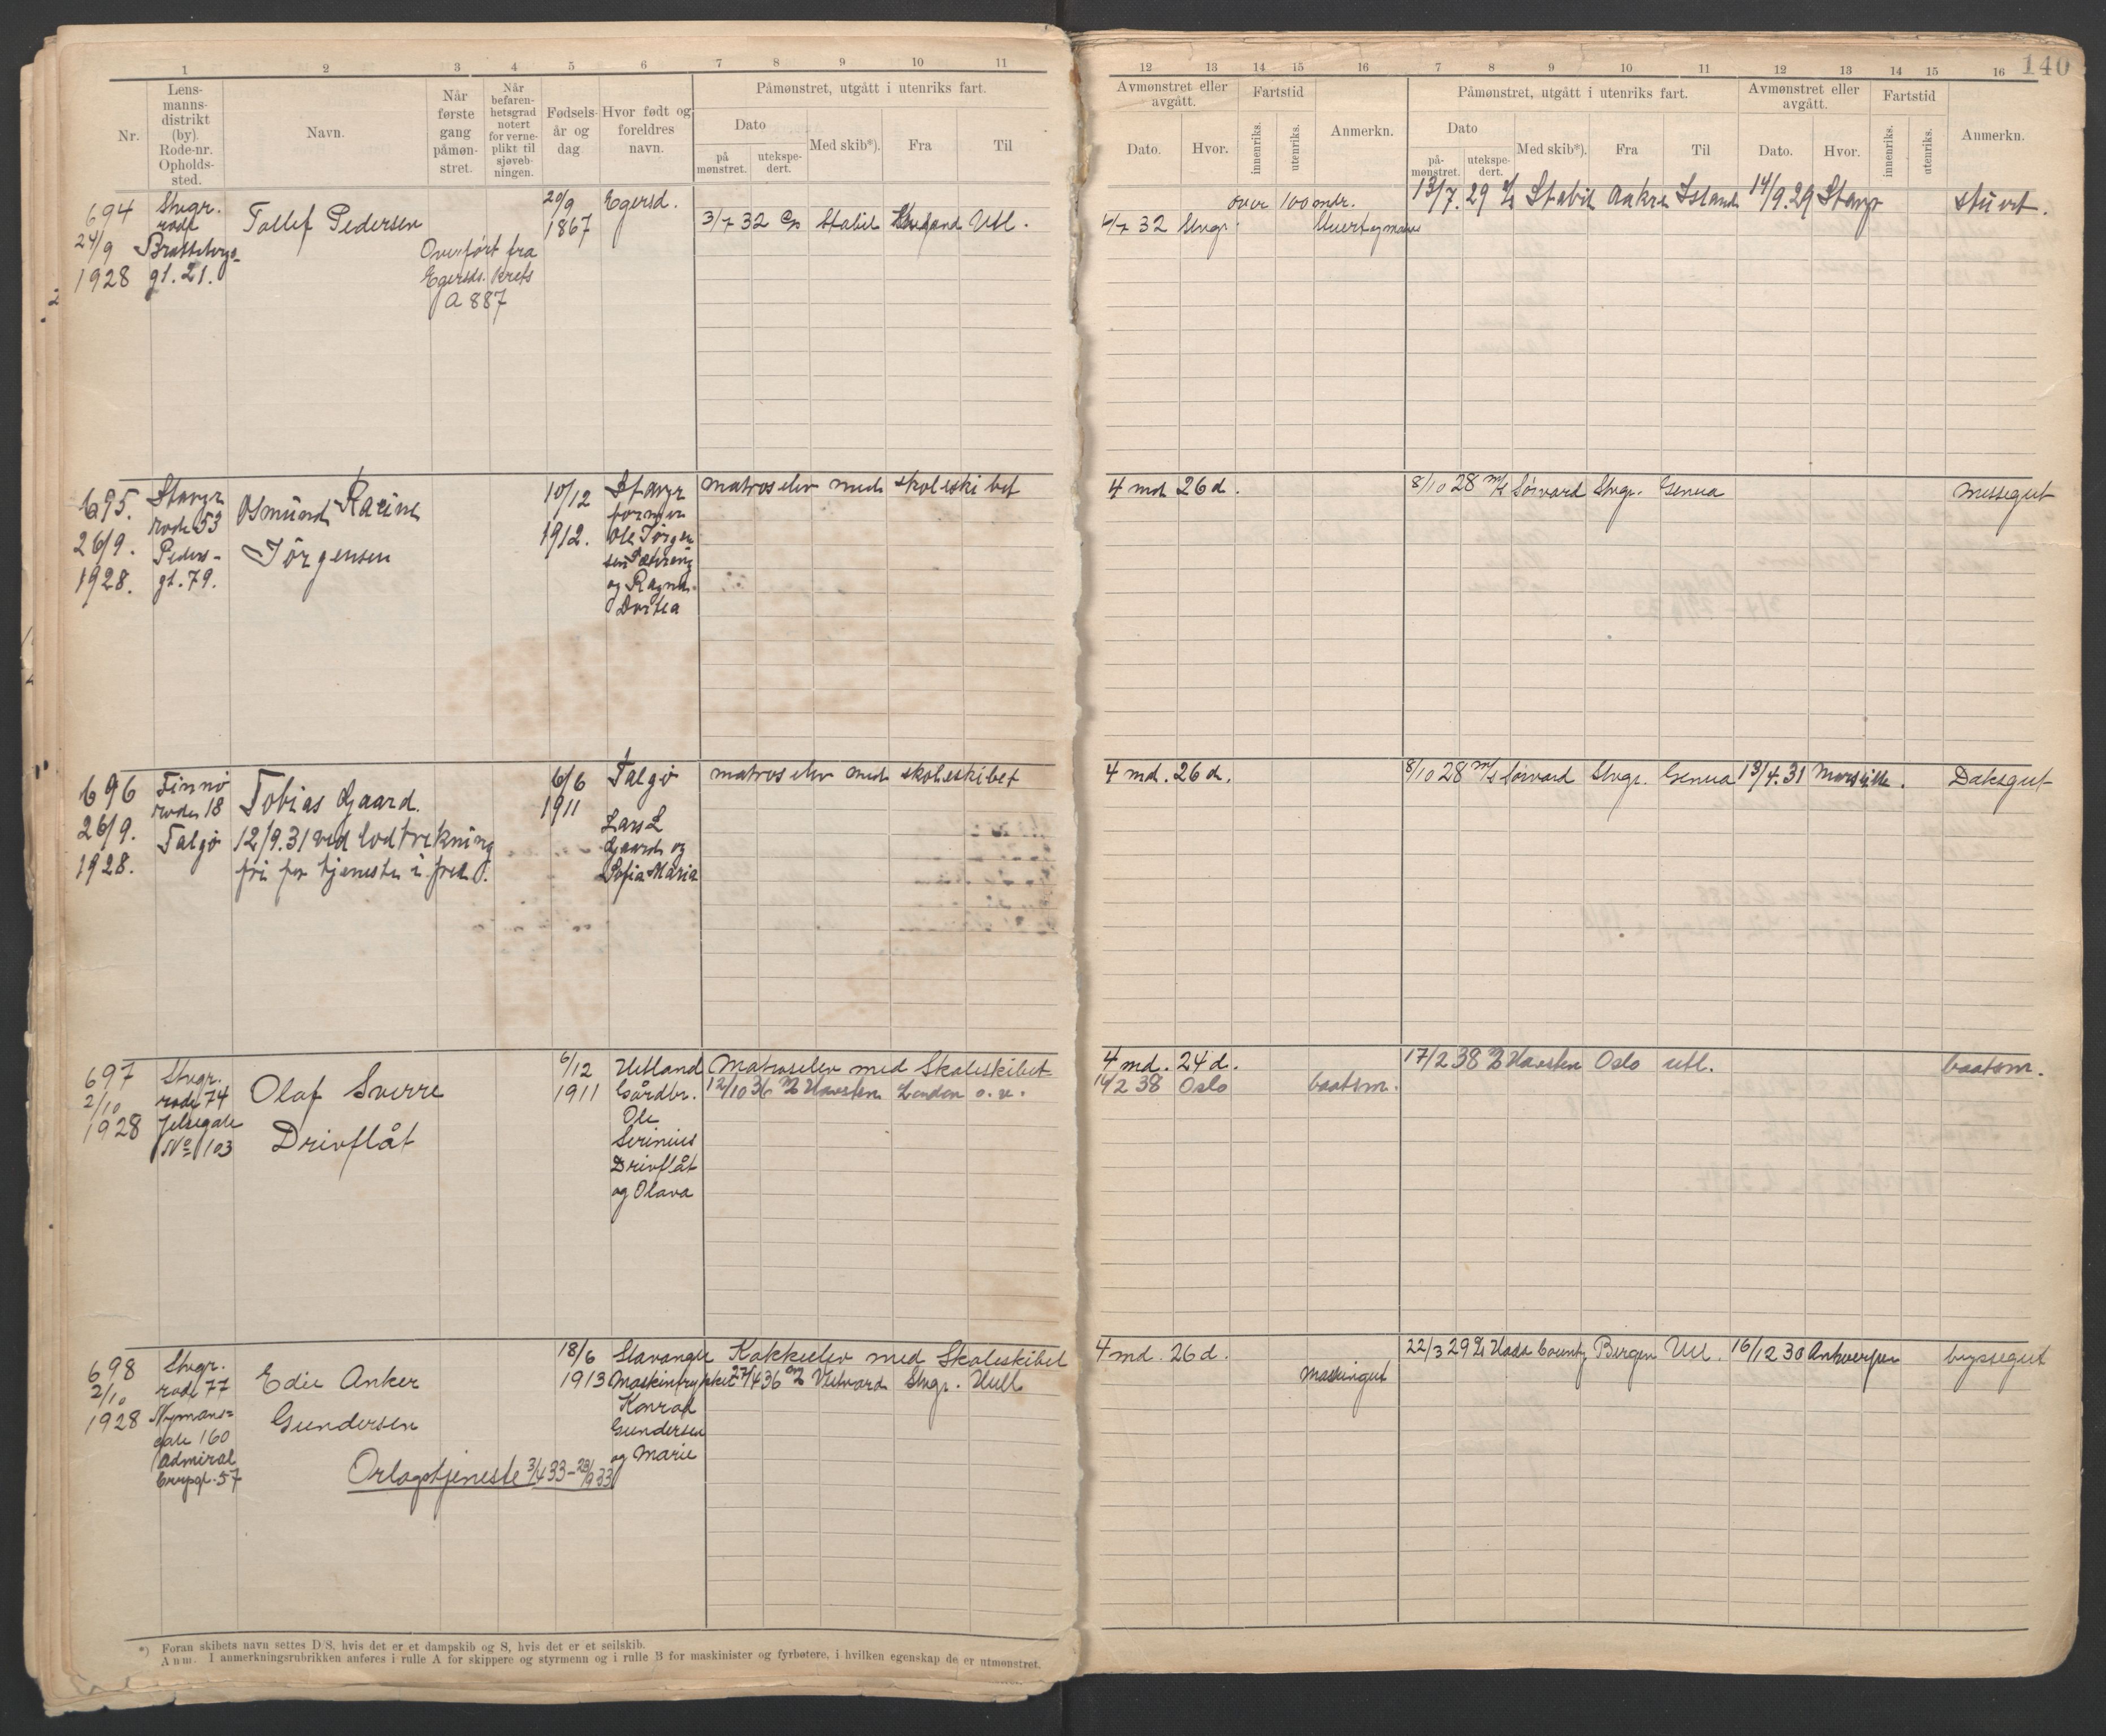 140
1 2 3 4 5 6 7 8 9 10 11
Nr.
Lens-
manns-
distrikt
(by).
Rode-nr.
Opholds-
sted.
Navn.
Når
første
gang
påmøn-
stret.
Når
befaren-
hetsgrad
notert
for verne-
plikt til
sjøveb-
ningen.
Fødsels-
år og
dag
Hvor født og
foreldres
navn.
Påmønstret, utgått i utenriks fart.
Dato
på
mønstret.
utekspe-
dert.
Med skib*).
Fra
Til
12 13 14 15 16 7 8 9 10 11 12 13 14 15 16
Avmønstret eller
avgått.
Dato.
Hvor.
Fartstid
innenriks.
utenriks.
Anmerkn.
Påmønstret, utgått i utenriks fart.
Dato
på-
mønstret.
utekspe-
dert.
Med skib*).
Fra
Til
Avmønstret eller
avgått.
Dato.
Hvor.
Fartstid
innenriks.
utenriks.
Anmerkn.
694
24/9
1928
Stvgr.
rode
gt. 21.
Tollef Pedersen
Overført fra
Egersds. krets
A 887
29/9
1867
Egersd.
3/7 32 Stabil Utl.
6/7 32 Stvgr.
over 100 mdr.
13/7. 29 Stabil Aakre Island 14/9. 29 Stavgr
stuert.
695.
26/9.
1928.
Stavgr
rode 53
Peders-
gt. 79.
Osmund
Jörgensen
10/12
1912.
Stavgr
former
Ole Jörgen
sen
og Ragna
Dortea
matroselev med skoleskibet
4 md 26 d.
8/10 28 m/s Sörvard Stvgr. Genua
messegut
696
26/9.
1928.
Finnö
rode 18
Talgö
Tobias Gaard.
12/9. 31 ved lodtrekning
fri for tjeneste i fred.
6/6
1911
Talgö
Lars L
Gaard og
Sofia Maria
matroselev med skoleskibet
4 md. 26 d.
8/10 28 m/s Sörvard Stvgr. Genua 13/4. 31 Marseille.
Daksgut
697
2/10
1928
Stvgr.
rode 74
Jelsegate
No 103
Olaf Sverre
Drivflåt
6/12
1911
Gårdbr.
Ole
Serinius
Drivflåt
og Olava
Matroselev med Skoleskibet
12/10 36 London o. v.
4 md. 24 d.
14/2 38 Oslo baatsm.
17/2 38 Oslo utl.
baatsm.
698
2/10
1928
Stvgr.
rode 77
Nymans-
gate 160
Admiral
Edie Anker
Gundersen
Orlogstjeneste 3/4 33 – 23/9 33
18/6
1913
Stavanger
Konrad
Gundersen
og Marie
Kokkelev med Skoleskibet
27/4 36 Stvgr. Hull
4 md. 26 d.
Maskingut
22/3 29 County Bergen Utl. 16/12 30 Antwerpen
byssegut
*) Foran skibets navn settes D/S, hvis det er et dampskib og S, hvis det er et seilskib.
Anm. I anmerkningsrubrikken anføres i rulle A for skippere og styrmenn og i rulle B for maskinister og fyrbøtere, i hvilken egenskap de er utmønstret.